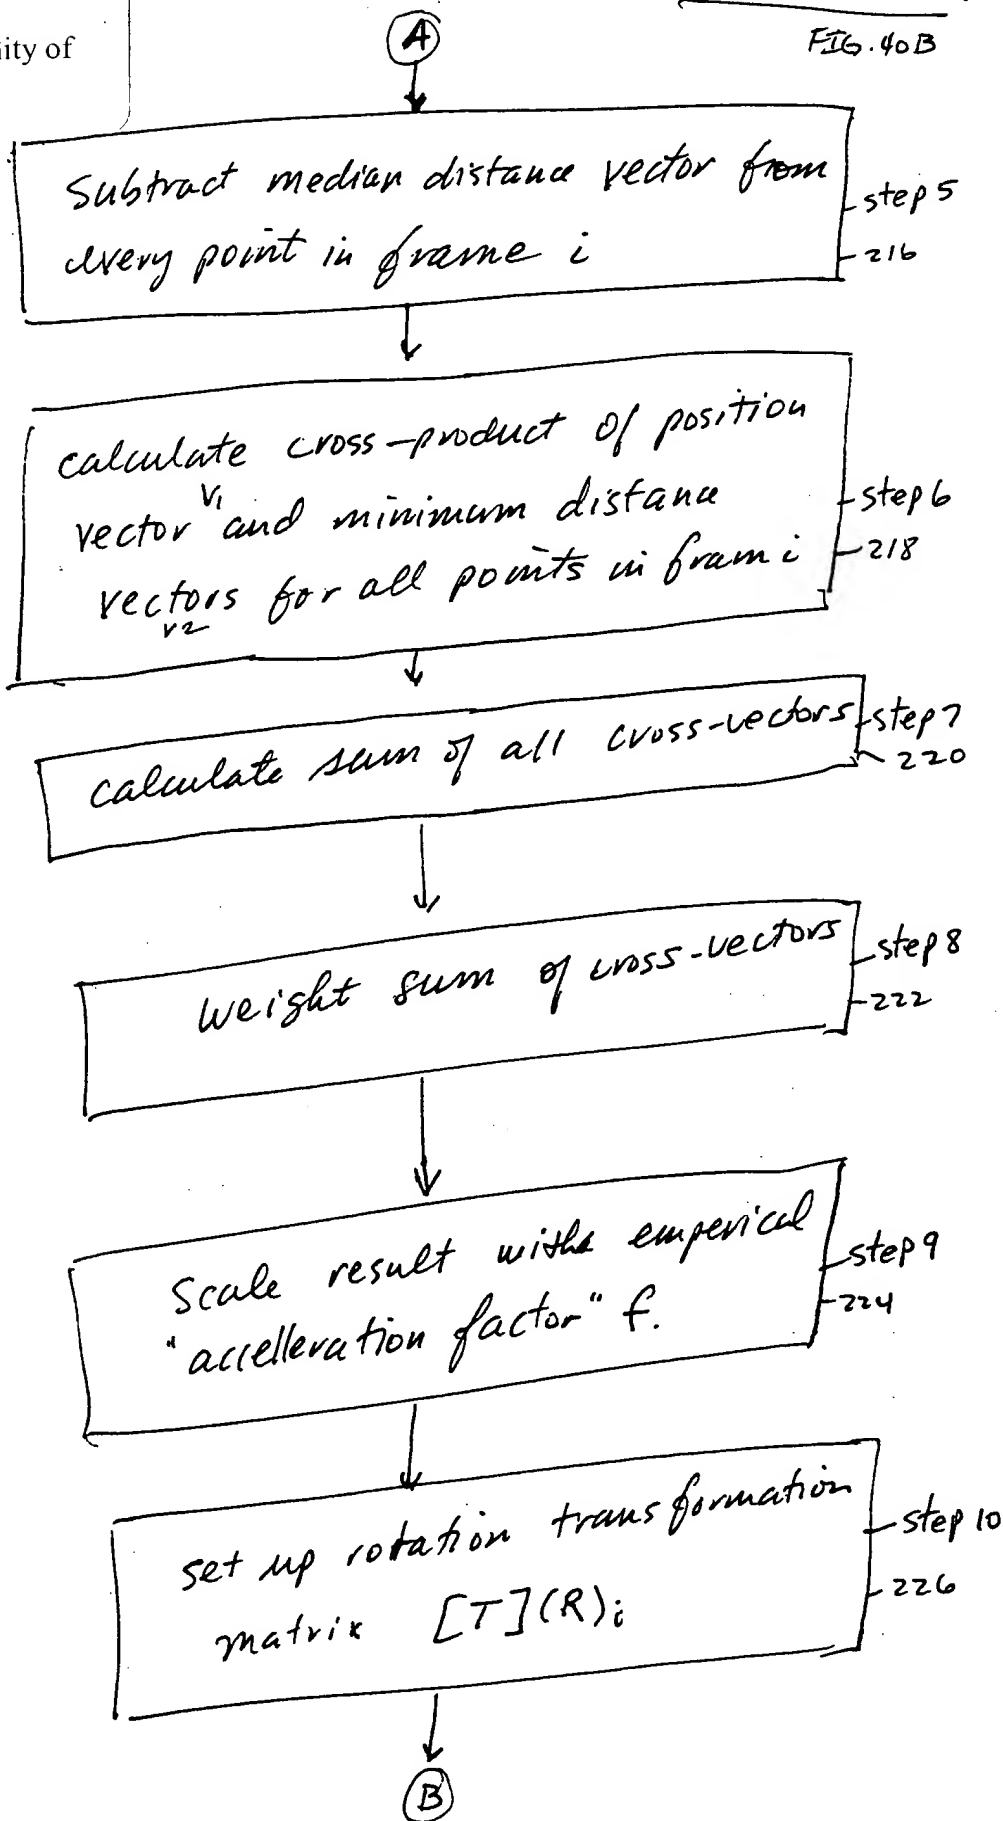 ity of
A
FIG. 40B
Subtract median distance vector from
every point in frame i
step 5
216
calculate cross-product of position
vector V1 and minimum distance
vectors V2 for all points in fram i
step 6
218
calculate sum of all cross-vectors
step 7
220
weight sum of cross-vectors
step 8
222
Scale result with emperical
"accelleration factor" f.
step 9
224
set up rotation transformation
matrix [T](R)i
step 10
226
B